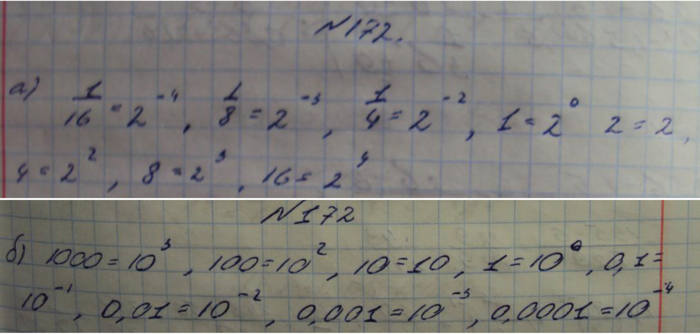 №172.
а) 1/16 = 2⁻⁴, 1/8 = 2⁻³, 1/4 = 2⁻², 1 = 2⁰ 2 = 2,
4 = 2², 8 = 2³, 16 = 2⁴
№172
б) 1000 = 10³, 100 = 10², 10 = 10, 1 = 10⁰, 0,1 =
10⁻¹, 0,01 = 10⁻², 0,001 = 10⁻³, 0,0001 = 10⁻⁴